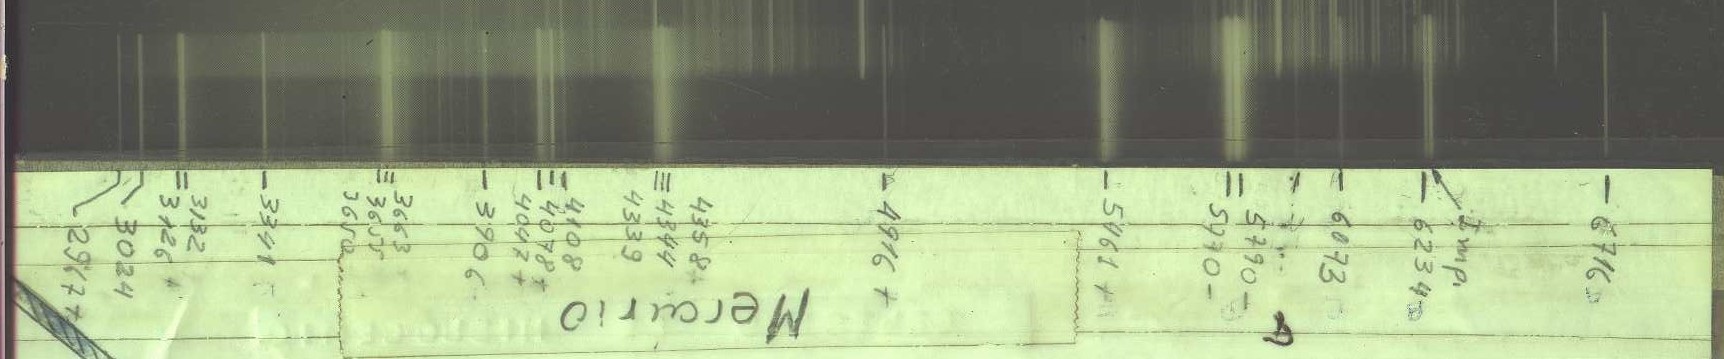 2967+
3024
3126+
3132
3341
3650
3655
3663
3906
4047+
4078+
4108
4339
4344
4358+
4916+
5461+
5970-
5790-
6073
6234
Imp.
6716
Mercurio